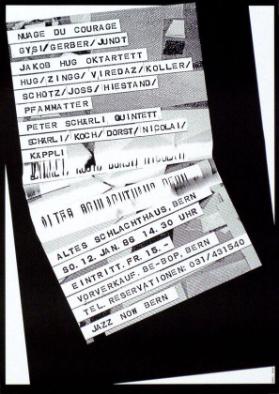 NUAGE DU COURAGE
GYSI/GERBER/JUNDT
JAKOB HUG OKTARTETT
HUG/ZINGG/VIREDAZ/KOLLER/
SCHÜTZ/JOSS/HIESTAND/
PFAMMATTER
PETER SCHÄRLI QUINTETT
SCHÄRLI/KOCH/DORST/NICOLAI/
KÄPPLI
ALTES SCHLACHTHAUS BERN
ALTES SCHLACHTHAUS, BERN
SO. 12. JAN. 86 14.30 UHR
EINTRITT, FR. 15.-
VORVERKAUF. BE-BOP, BERN
TEL. RESERVATIONEN: 031/431540
JAZZ NOW BERN